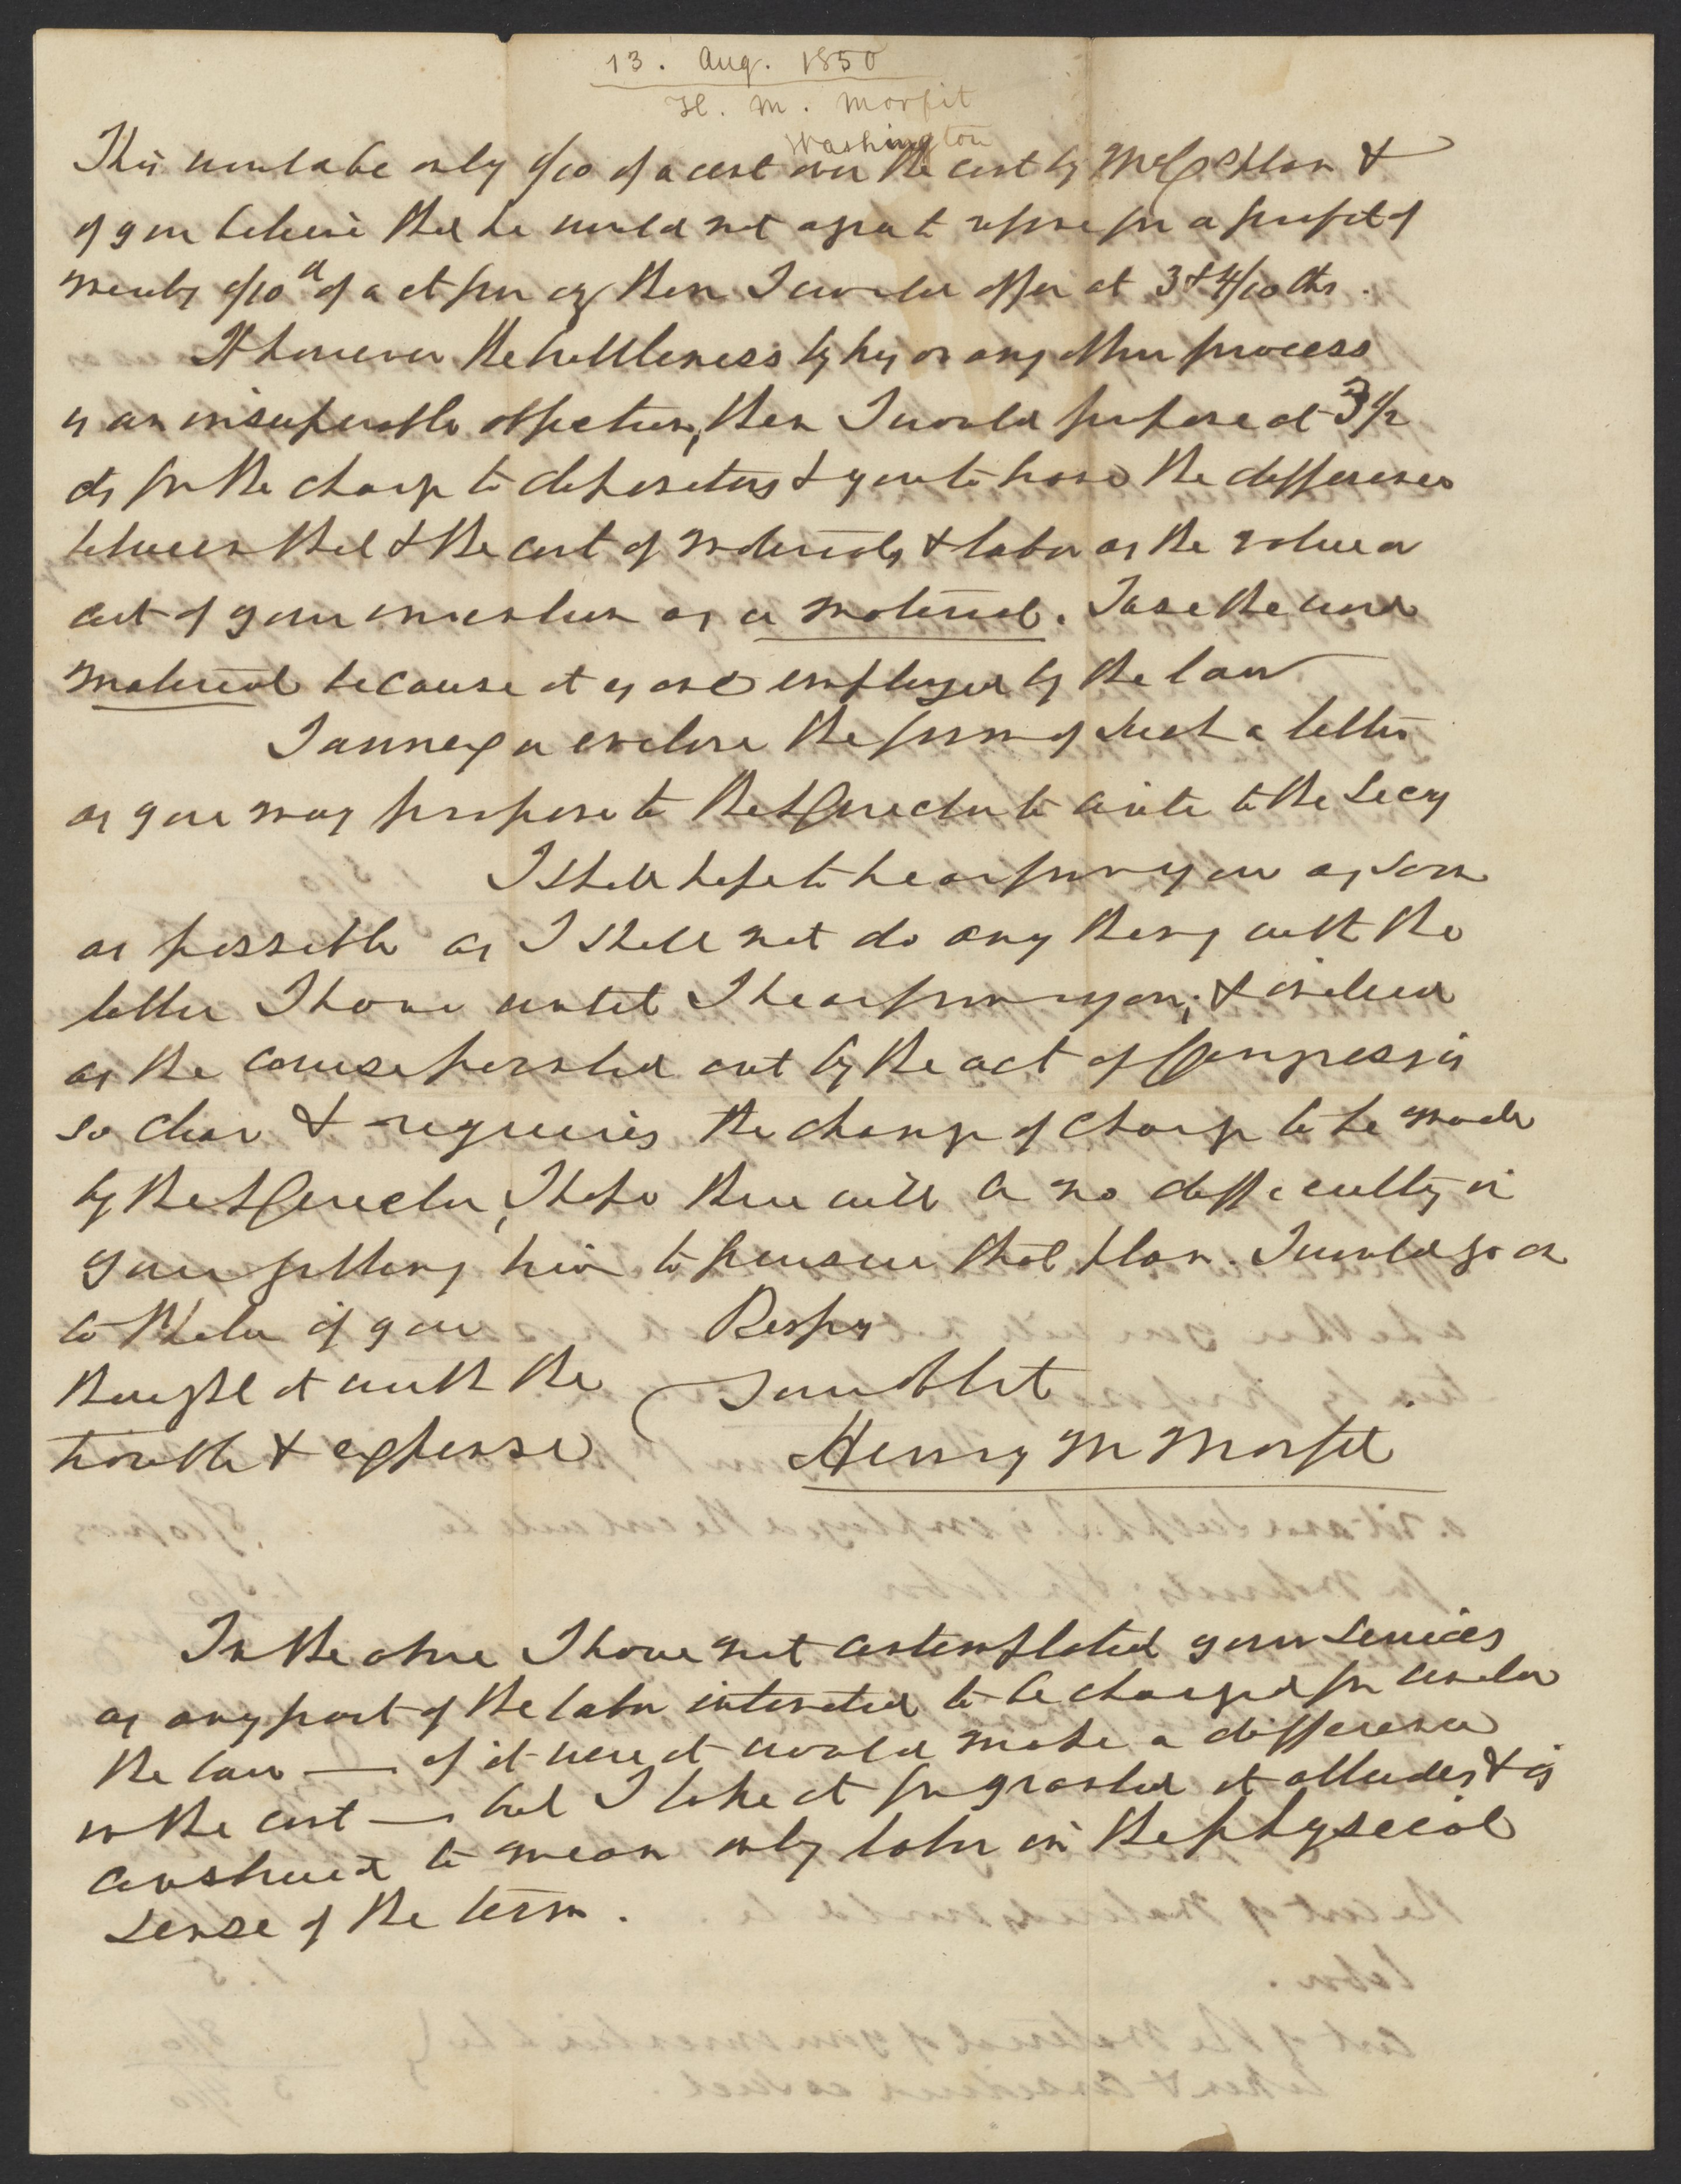 13. Aug. 1850
H. M. Morfit
Washington
This would be only 9/10 of a cent over the cost by McC plan &
if you believe that he would not agree to refuse for a profit of
merely 9/10 of a ct per oz then I would offer at 3 & 4/10 cts.
If however the brittleness by his or any other process
is an insuperable objection, then I would propose at 3 1/2
cts for the charge to depositors & you to have the difference
between that & the cost of materials & labor as the value or
cost of your invention as a material. I use the word
material because it is one employed by the law
I annex or enclose the form of such a letter
as you may propose to the Director to write to the Secy
I shall hope to hear from you as soon
as possible as I shall not do any thing with the
letter I have until I hear from you; & indeed
as the course pointed out by the act of Congress is
so clear & requires the change of charge to be made
by the Director, I hope there will be no difficulty in
your getting him to pursue that plan. I would go on
to Phila if you
thought it worth the
trouble & expense
Respy
Your Obt
Henry M Morfit
In the above I have not contemplated your services
as any part of the labor intended to be charged for under
the law — if it were it would make a difference
in the cost — but I take it for granted it alludes & is
construed to mean only labor in the physical
sense of the term.